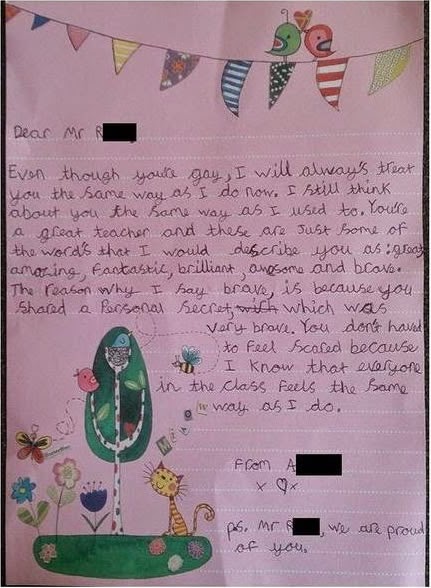 Dear Mr R
Even though you're gay, I will always treat
you the same way as I do now. I still think
about you the same way as I used to. You're
a great teacher and these are just some of
the word's that I would describe you as: great,
amazing, fantastic, brilliant, awesome and brave.
The reason why I say brave, is because you
shared a Personal secret, with which was
very brave. You don't have
to feel scared because
I know that everyone
in the class feels the same
way as I do.
Meow
From A
x ♡ x
ps. Mr R, we are proud
of you.